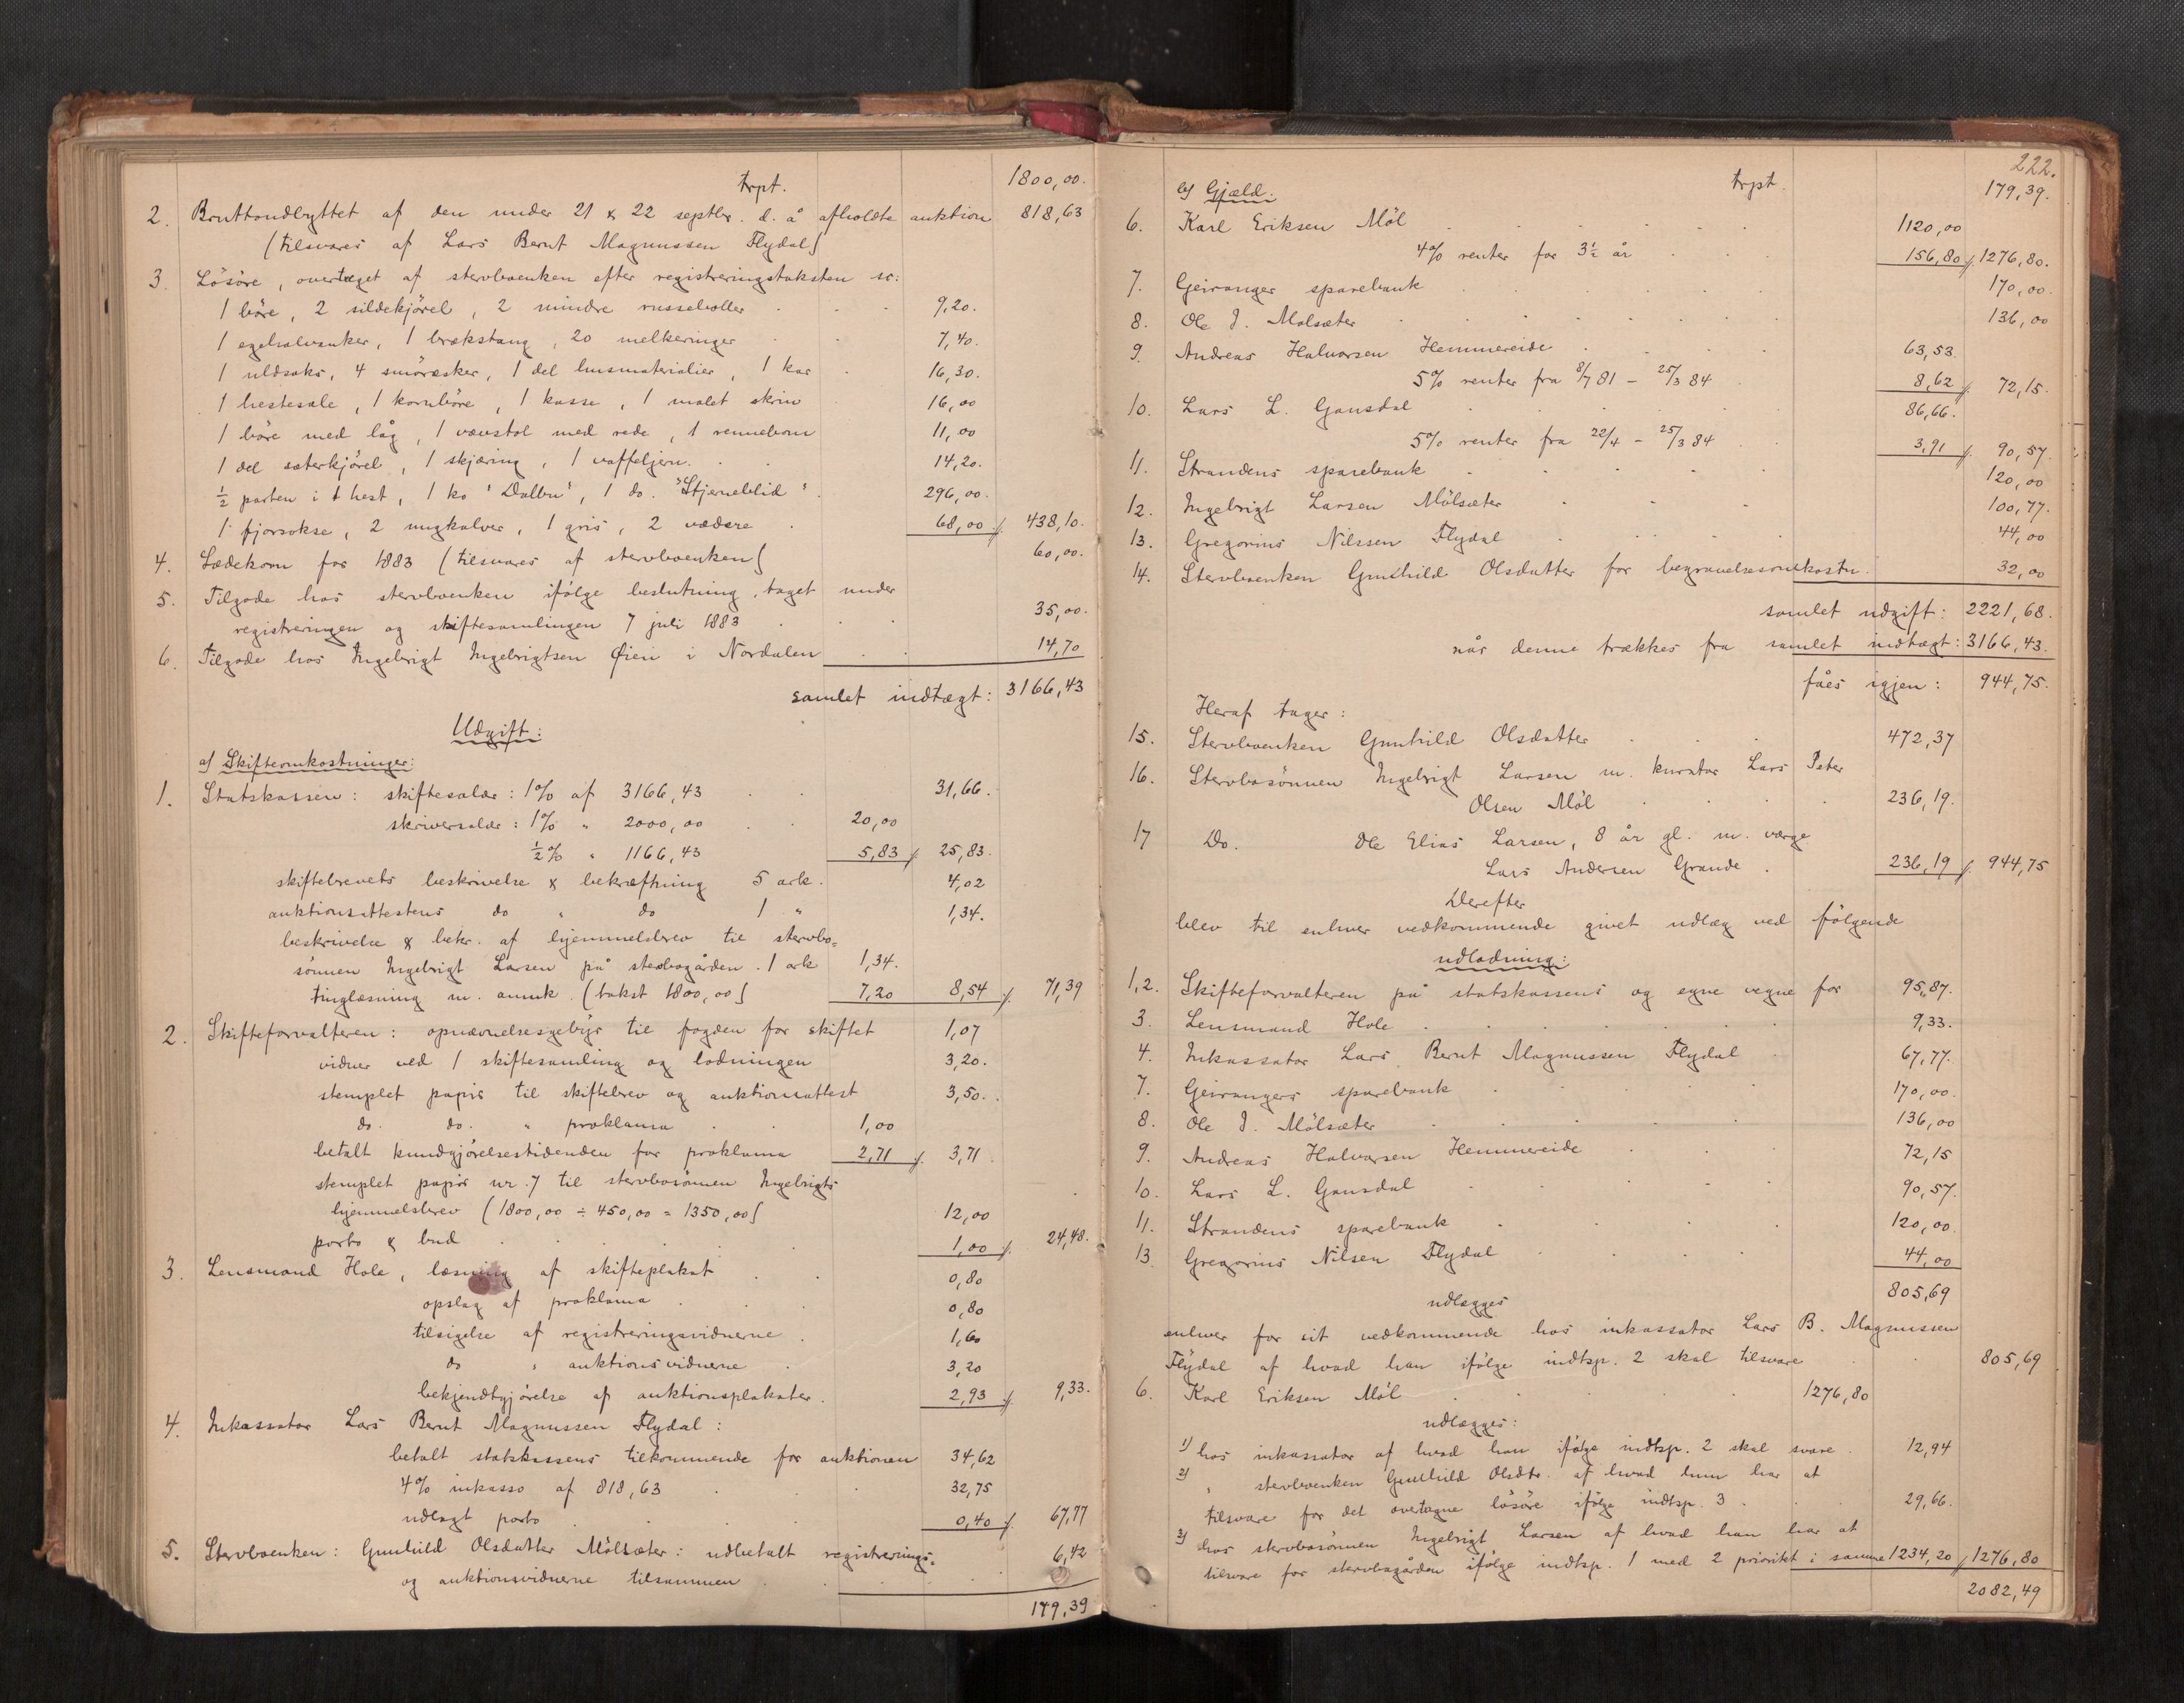 trpt. 1800,00.
2. Bruttoudbyttet af den under 21 & 22 septbr. d. å afholdte auktion 818,63
(tilsvares af Lars Bernt Magnussen Flydal)
3. Lösöre, overtaget af stervboenken efter registreringstaksten sc:
1 böre, 2 sildekjörel, 2 mindre russeboller 9,20.
1 egehalvanker, 1 brækstang, 20 melkeringer 7,40.
1 uldsaks, 4 smöræsker, 1 del husmaterialier, 1 kar 16,30.
1 hestesale, 1 kornböre, 1 kasse, 1 malet skrin 16,00
1 böre med låg, 1 vævstol med rede, 1 rennebom 11,00
1 del sæterkjörel, 1 skjæring, 1 vaffeljern. 14,20.
½ parten i 1 hest, 1 ko "Dalbu", 1 do. "Stjerneblid" 296,00.
1 fjorsokse, 2 ungkalver, 1 gris, 2 vædere 68,00 /. 438,10.
4. Sædekorn for 1883 (tilsvares af stervboenken) 60,00.
5. Tilgode hos stervboenken ifölge beslutning, taget under
registreringen og skiftesamlingen 7 juli 1883 35,00.
6. Tilgode hos Ingebrigt Ingebrigtsen Øien i Nordalen 14,70
samlet indtægt: 3166,43
Udgift:
a) Skifteomkostninger:
1. Statskassen: skiftesalær: 1% af 3166,43 31,66.
skriversalær: 1% " 2000,00 20,00
½% " 1166,43 5,83 /. 25,83.
skiftebrevets beskrivelse & bekræftning 5 ark. 4,02
auktionsattestens do " do 1 " 1,34.
beskrivelse & bekr. af hjemmelsbrev til stervbo=
sönnen Ingebrigt Larsen på stervbogården. 1 ark 1,34.
tinglæsning m. anmk. (takst 1800,00) 7,20 8,54 /. 71,39
2. Skifteforvalteren: opnævnelsesgebyr til fogden for skiftet 1,07
vidner ved 1 skiftesamling og lodningen 3,20.
stemplet papir til skiftebrev og auktionsattest 3,50.
do. do. " proklama 1,00
betalt kundgjörelsestidenden for proklama 2,71 /. 3,71
stemplet papir nr. 7 til stervbosönnen Ingebrigts
hjemmelsbrev (1800,00 ÷ 450,00 = 1350,00) 12,00
porto & bud 1,00 /. 24,48.
3. Lensmand Hole, læsning af skifteplakat 0,80
opslag af proklama 0,80
tilsigelse af registreringsvidnerne 1,60
do " auktionsvidnerne 3,20
bekjendtgjörelse af auktionsplakater. 2,93 /. 9,33.
4. Inkassator Lars Bernt Magnussen Flydal:
betalt statskassens tilkommende for auktionen 34,62
4% inkasso af 818,63 32,75
udlagt porto 0,40 /. 67,77
5. Stervboenken: Gunhild Olsdatter Mölsæter: udbetalt registrerings=
og auktionsvidnerne tilsammen 6,42
179,39
222.
trpt. 179,39.
b) Gjæld:
6. Karl Eriksen Möl 1120,00
4% renter for 3½ år 156,80 /. 1276,80.
7. Geiranger sparebank 170,00.
8. Ole J. Mölsæter 136,00
9. Andreas Halvorsen Hemmereide 63,53.
5% renter fra 8/7 81 - 25/3 84 8,62 /. 72,15.
10. Lars L. Gausdal 86,66.
5% renter fra 22/4 - 25/3 84 3,91 /. 90,57.
11. Strandens sparebank 120,00
12. Ingebrigt Larsen Mölsæter 100,77.
13. Gregorius Nilssen Flydal 44,00
14. Stervboenken Gunhild Olsdatter for begravelsesomkostn. 32,00
samlet udgift: 2221,68.
når denne trækkes fra samlet indtægt: 3166,43.
fåes igjen: 944,75.
Heraf tager:
15. Stervboenken Gunhild Olsdatter 472,37
16. Stervbosönnen Ingebrigt Larsen m. kurator Lars Peter
Olsen Möl 236,19.
17 Do. Ole Elias Larsen, 8 år gl. m. værge
Lars Andersen Grande 236,19 /. 944,75
Derefter
blev til enhver vedkommende givet udlæg ved följende
udlodning:
1,2. Skifteforvalteren på statskassens og egne vegne for 95,87.
3. Lensmand Hole 9,33.
4. Inkassator Lars Bernt Magnussen Flydal 67,77.
7. Geirangers sparebank 170,00.
8. Ole J. Mölsæter 136,00
9. Andreas Halvorsen Hemmereide 72,15
10. Lars L. Gausdal 90,57.
11. Strandens sparebank 120,00.
13 Gregorius Nilsen Flydal 44,00
805,69
udlægges
enhver for sit vedkommende hos inkassator Lars B. Magnussen
Flydal af hvad han ifölge indtsp. 2 skal tilsvare 805,69
6. Karl Eriksen Möl 1276,80
udlægges:
1) hos inkassator af hvad han ifölge indtsp. 2 skal svare. 12,94
2) " stervboenken Gunhild Olsdtr. af hvad hun har at
tilsvare for det overtagne lösöre ifölge indtsp. 3. 29,66.
3) hos stervbosönnen Ingebrigt Larsen af hvad han har at
tilsvare for stervbogården ifölge indtsp. 1 med 2 prioritet i samme 1234,20 /. 1276,80
2082,49